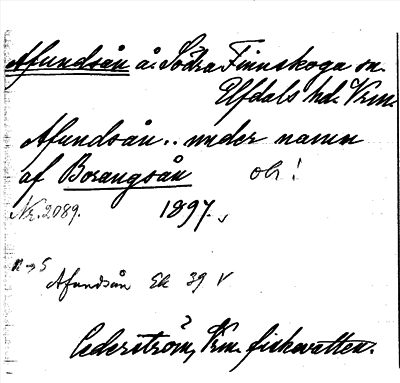 Afundsån å. Södra Finnskoga sn.
Elfdals hd. Vrm.
Afundsån.. under namn
af Borangsån obs!
Nr. 2089. 1897.
N→S
Afundsån Ek 39 V
?
Cederström, Vrm. fiskevatten.